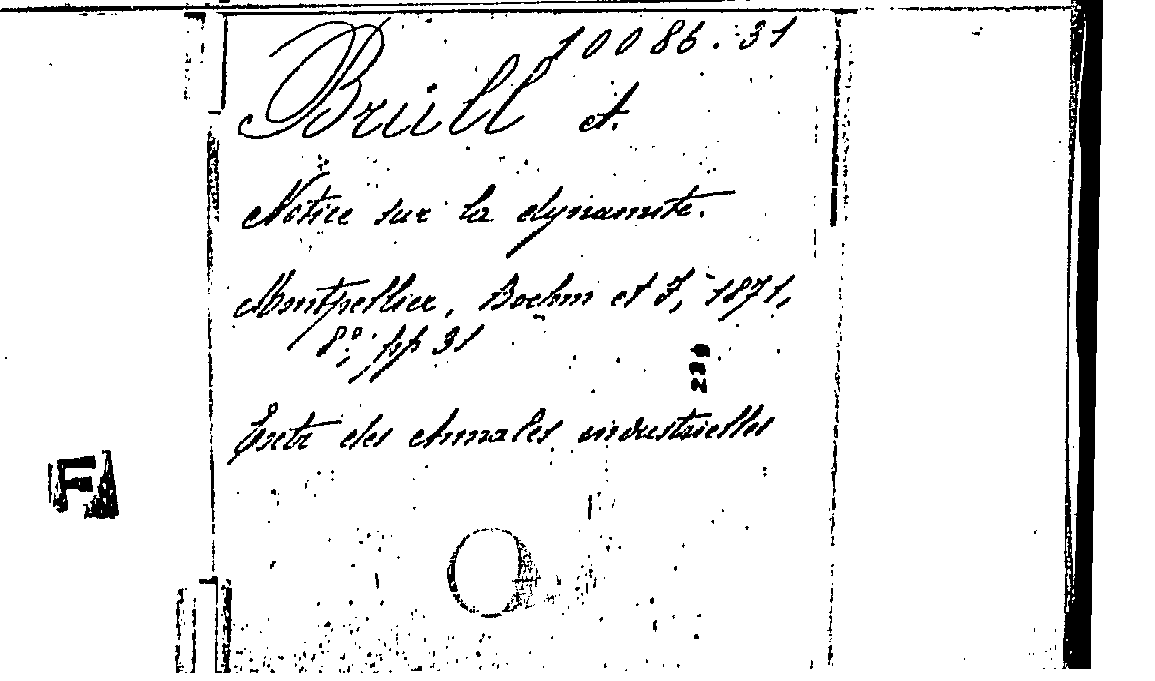 10086.31
Brüll A.
Notice sur la dynamite.
Montpellier, Boehm et F, 1871,
8º; pp 31
Extr des Annales industrielles
F